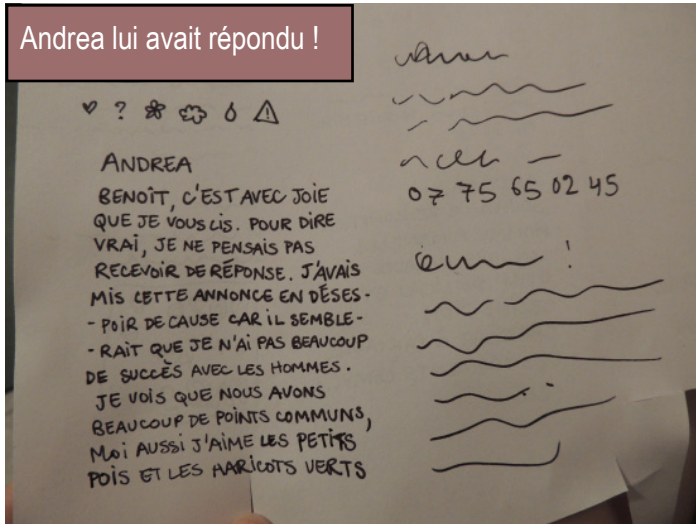 Andrea lui avait répondu !
ANDREA
BENOÎT, C'EST AVEC JOIE
QUE JE VOUS LIS. POUR DIRE
VRAI, JE NE PENSAIS PAS
RECEVOIR DE RÉPONSE. J'AVAIS
MIS CETTE ANNONCE EN DÉSES-
- POIR DE CAUSE CAR IL SEMBLE-
- RAIT QUE JE N'AI PAS BEAUCOUP
DE SUCCÈS AVEC LES HOMMES.
JE VOIS QUE NOUS AVONS
BEAUCOUP DE POINTS COMMUNS,
MOI AUSSI J'AIME LES PETITS
POIS ET LES HARICOTS VERTS
07 75 65 02 45